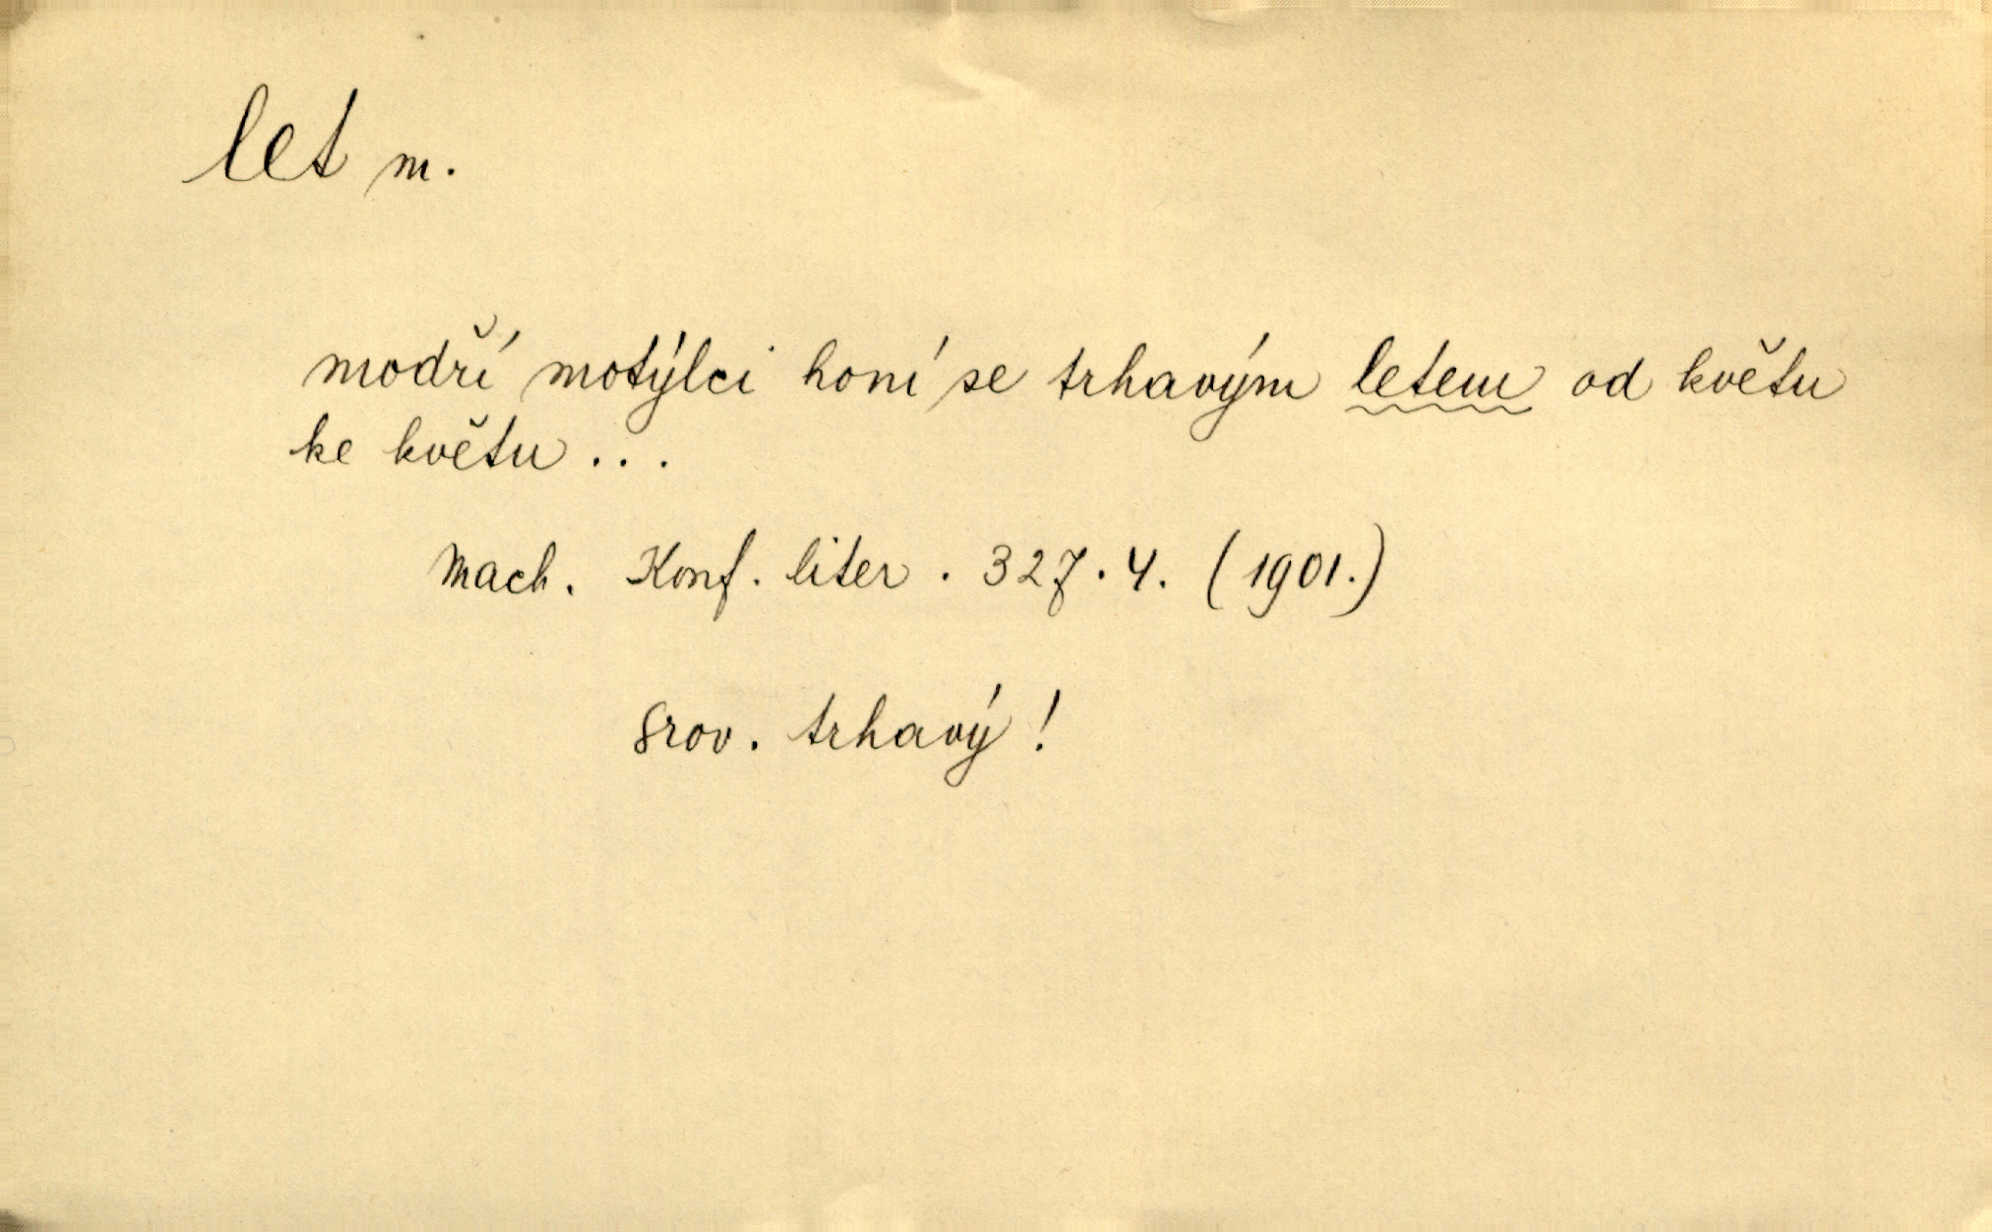 let m.
modří motýlci honí se trhavým letem od květu
ke květu . . .
Mach. Konf. liter. 327. 4. (1901.)
srov. trhavý!